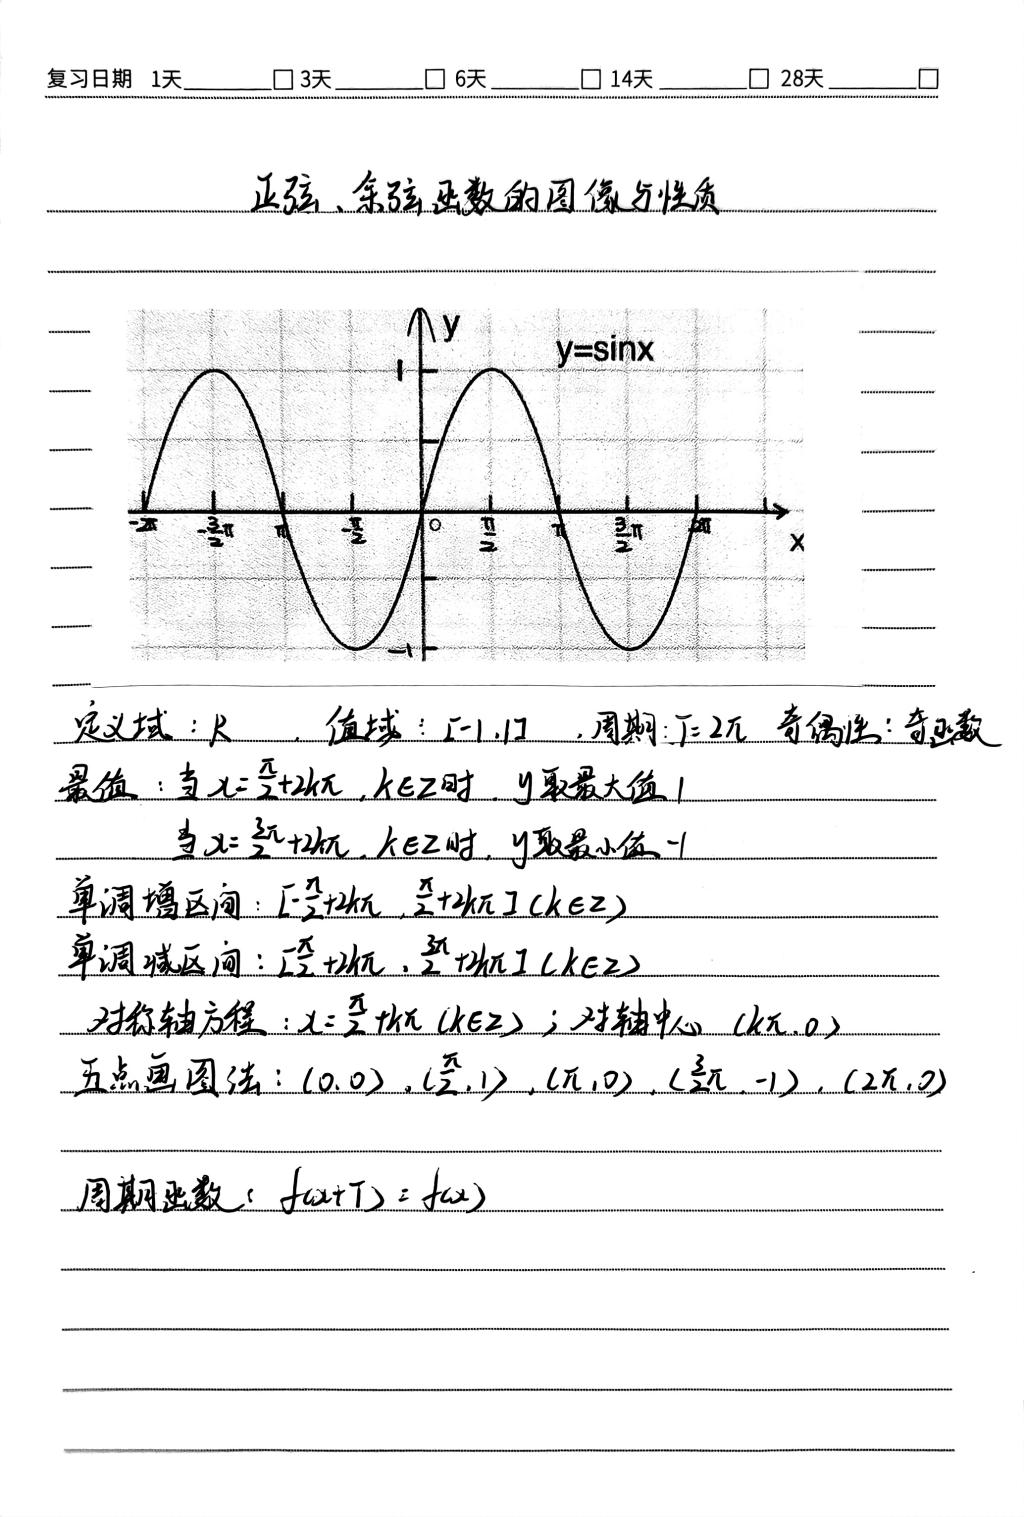 复习日期 1天 □ 3天 □ 6天 □ 14天 □ 28天 □
正弦、余弦函数的图像与性质
y
y=sinx
1
-2π -3/2π π -π/2 0 π/2 π 3/2π 2π
x
-1
定义域:R , 值域:[-1,1] ,周期:T=2π 奇偶性:奇函数
最值:当x=π/2+2kπ,k∈Z时,y取最大值1
当x=3π/2+2kπ,k∈Z时,y取最小值-1
单调增区间:[-π/2+2kπ,π/2+2kπ](k∈Z)
单调减区间:[π/2+2kπ,3π/2+2kπ](k∈Z)
对称轴方程:x=π/2+kπ(k∈Z);对轴中心(kπ,0)
五点画图法:(0,0),(π/2,1),(π,0),(3/2π,-1),(2π,0)
周期函数:f(x+T)=f(x)